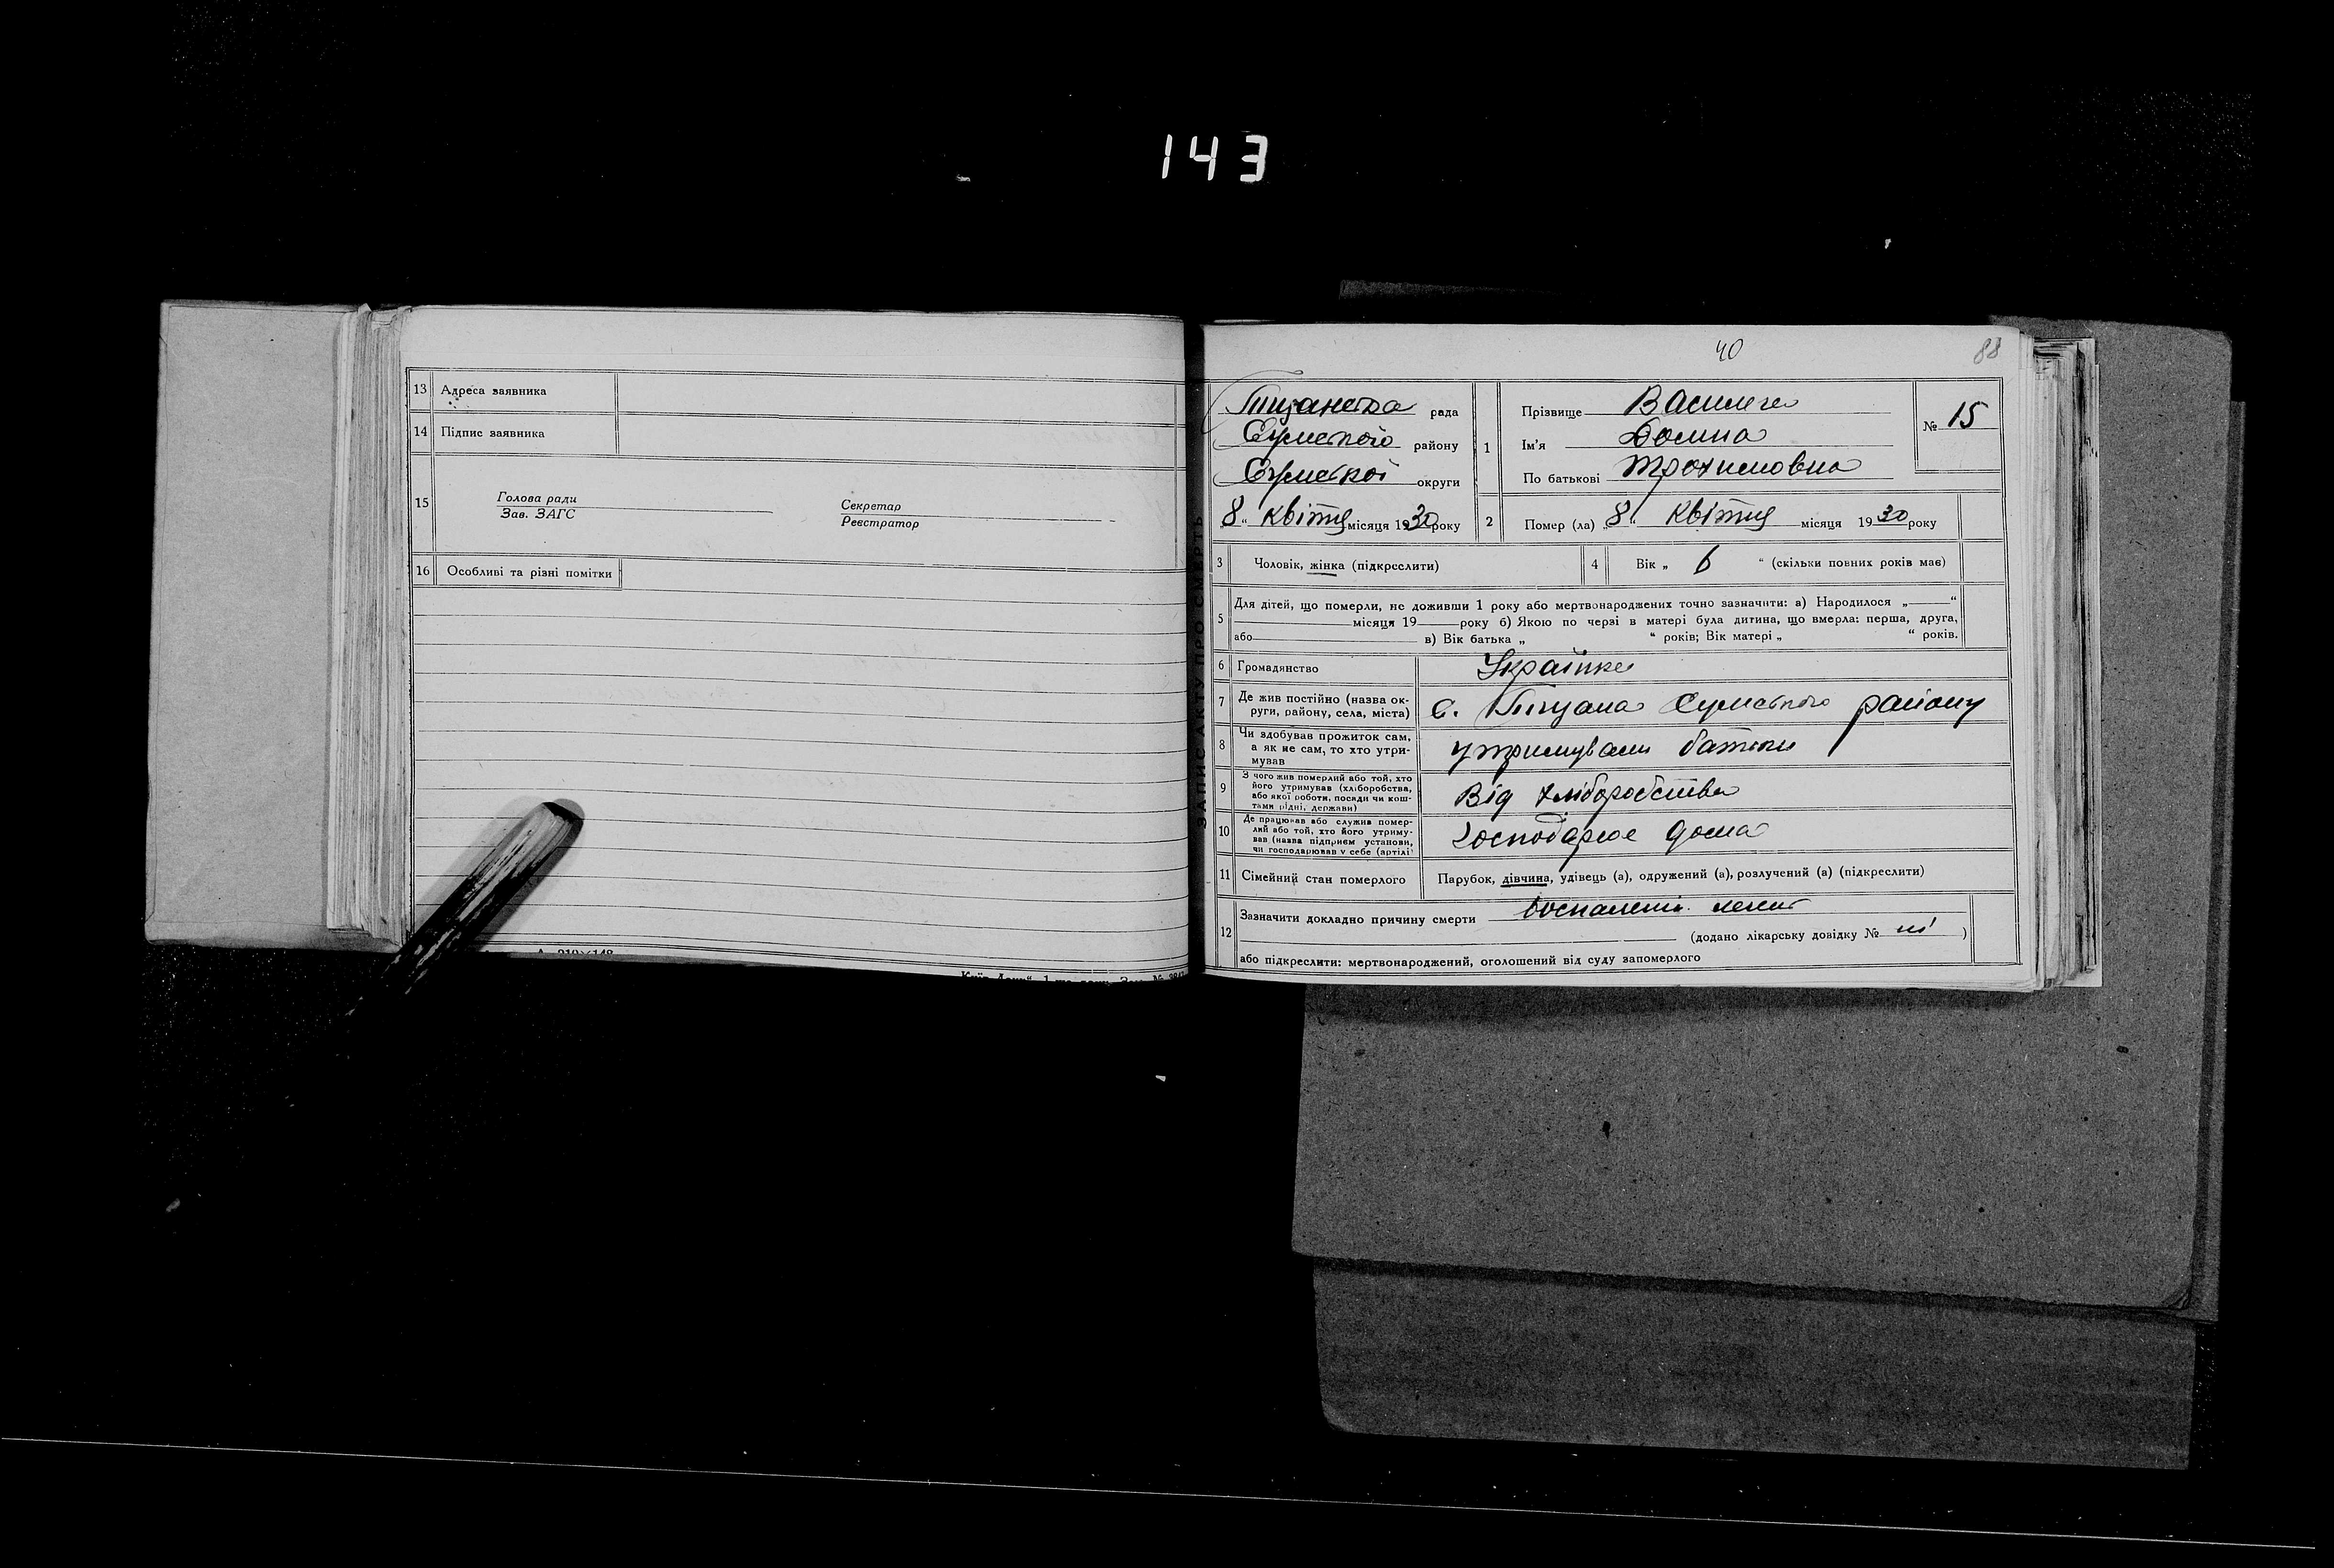 143
13 Адреса заявника
14 Підпис заявника
15 Голова ради
Зав. ЗАГС
Секретар
Реєстратор
16 Особливі та різні помітки
40
88
ЗАПИС АКТУ ПРО СМЕРТЬ
рада
Сумського району
Сумської округи
8 " квітня місяця 1930 року
1 Прізвище
Ім'я Домна
По батькові Трохимовна
№ 15
2 Помер (ла) „ 8 " квітня місяця 1930 року
3 Чоловік, жінка (підкреслити)
4 Вік „ 6 " (скільки повних років має)
5 Для дітей, що померли, не доживши 1 року або мертвонароджених точно зазначити: а) Народилося „ "
місяця 19 року б) Якою по черзі в матері була дитина, що вмерла: перша, друга,
або в) Вік батька „ " років; Вік матері „ " років.
6 Громадянство Українка
7 Де жив постійно (назва ок-
руги, району, села, міста) с. Сумського району
8 Чи здобував прожиток сам,
а як не сам, то хто утри-
мував утримували батьки
9 З чого жив померлий або той, хто
його утримував (хліборобства,
або якої роботи, посади чи кош-
тами рідні, держави) Від хліборобства
10 Де працював або служив помер-
лий або той, хто його утриму-
вав (назва підприєм установи,
чи господарював у себе (артілі) господарює дома
11 Сімейний стан померлого Парубок, дівчина, удівець (а), одружений (а), розлучений (а) (підкреслити)
12 Зазначити докладно причину смерти воспаления легких
(додано лікарську довідку № ні )
або підкреслити: мертвонароджений, оголошений від суду запомерлого